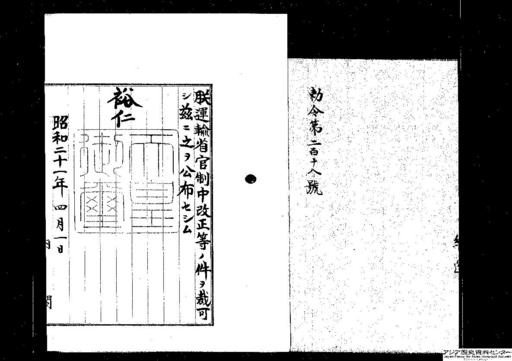 勅令第二百十八號
朕運輸省官制中改正等ノ件ヲ裁可
シ茲ニ之ヲ公布セシム
裕仁
天皇
御璽
昭和二十一年四月一日
内閣
アジア歴史資料センター